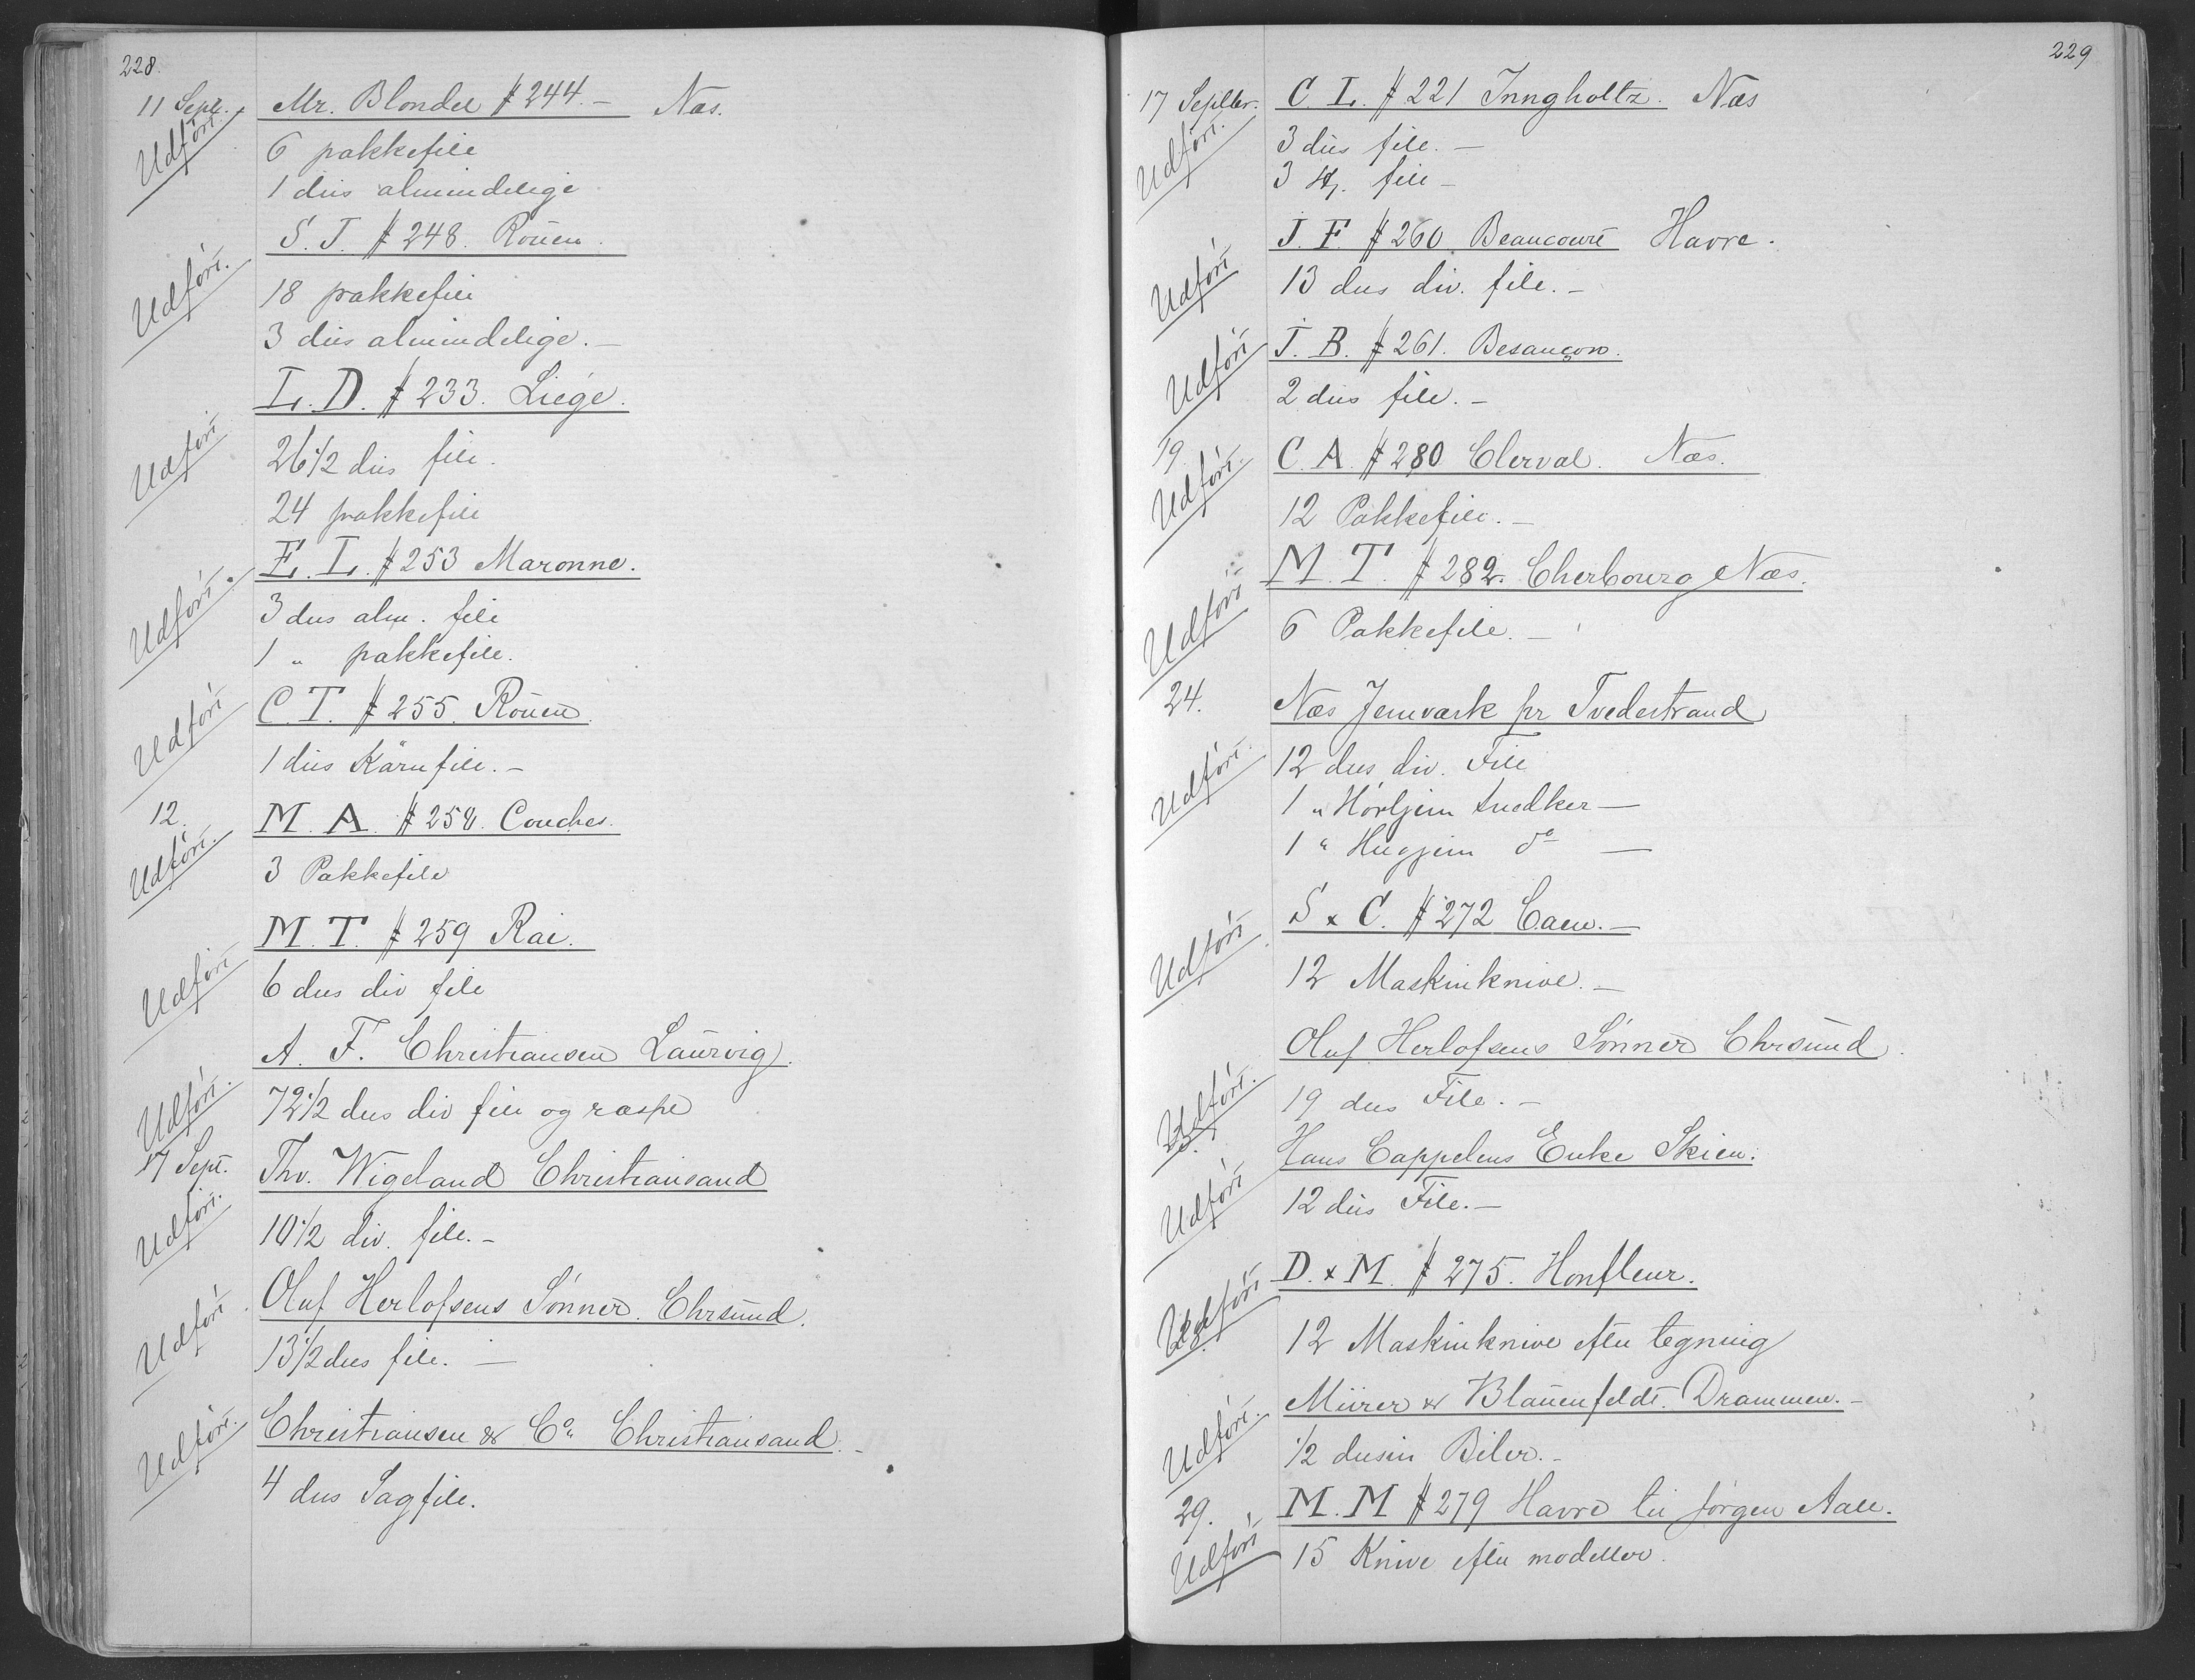 228.
11 Sept. Mr. Blondel # 244.– Næs.
Udført. 6 pakkefile
1 dus almindelige
S. J. # 248. Rouen.
Udført. 18 pakkefile
3 dus almindelige.–
L. D. # 233. Liége.
Udført 26 1/2 dus file.
24 pakkefile
E. L. # 253 Maronne.
Udført. 3 dus alm. file
1 " pakkefile.
C. T. # 255. Rouen.
Udført 1 dus Kärnfile.–
12. M. A. # 258. Conches.
Udført. 3 Pakkefile
M. T. # 259 Rai.
Udført 6 dus div file
A. F. Christiansen Laurvig.
Udført. 72 1/2 dus div file og raspe
17 Sept. Thv. Wigeland Christiansand
Udført. 10 1/2 div. file.–
Oluf Herlofsens Sønner. Chrsund.
Udført 13 1/2 dus file.–
Christiansen & Co. Christiansand.–
Udført. 4 dus Sagfile.
229
17 Septbr. C. L. # 221 Inngholtz. Næs
Udført. 3 dus file.–
3 St. file–
J. F # 260 Beaucourt Havre.
Udført 13 dus div. file.–
J. B. # 261. Besançon.
Udført 2 dus file.–
19 C. A. # 280 Clerval. Næs.
Udført. 12 Pakkefile.–
M. T. # 282. Cherbourg Næs.
Udført 6 Pakkefile.–
24. Næs Jernværk pr Tvedestrand
Udført. 12 dus div. File
1 " Hövljern snedker–
1 " Hugjern do –
S & C. # 272 Caen.–
Udført 12 Maskinknive.–
Oluf Herlofsens Sønner Chrsund.
Udført. 19 dus File.–
Hans Cappelens Enke Skien.
Udført 12 dus File.–
D. & M. # 275. Honfleur.
Udført 12 Maskinknive efter tegning
Mürer & Blauenfeldt. Drammen.–
Udført. 1/2 dusin Biler.–
29. M. M # 279 Havre til Jørgen Aall.
Udført 15 Knive efter modeller.